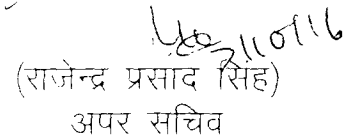 (राजेन्द्र प्रसाद सिंह)
अपर सचिव